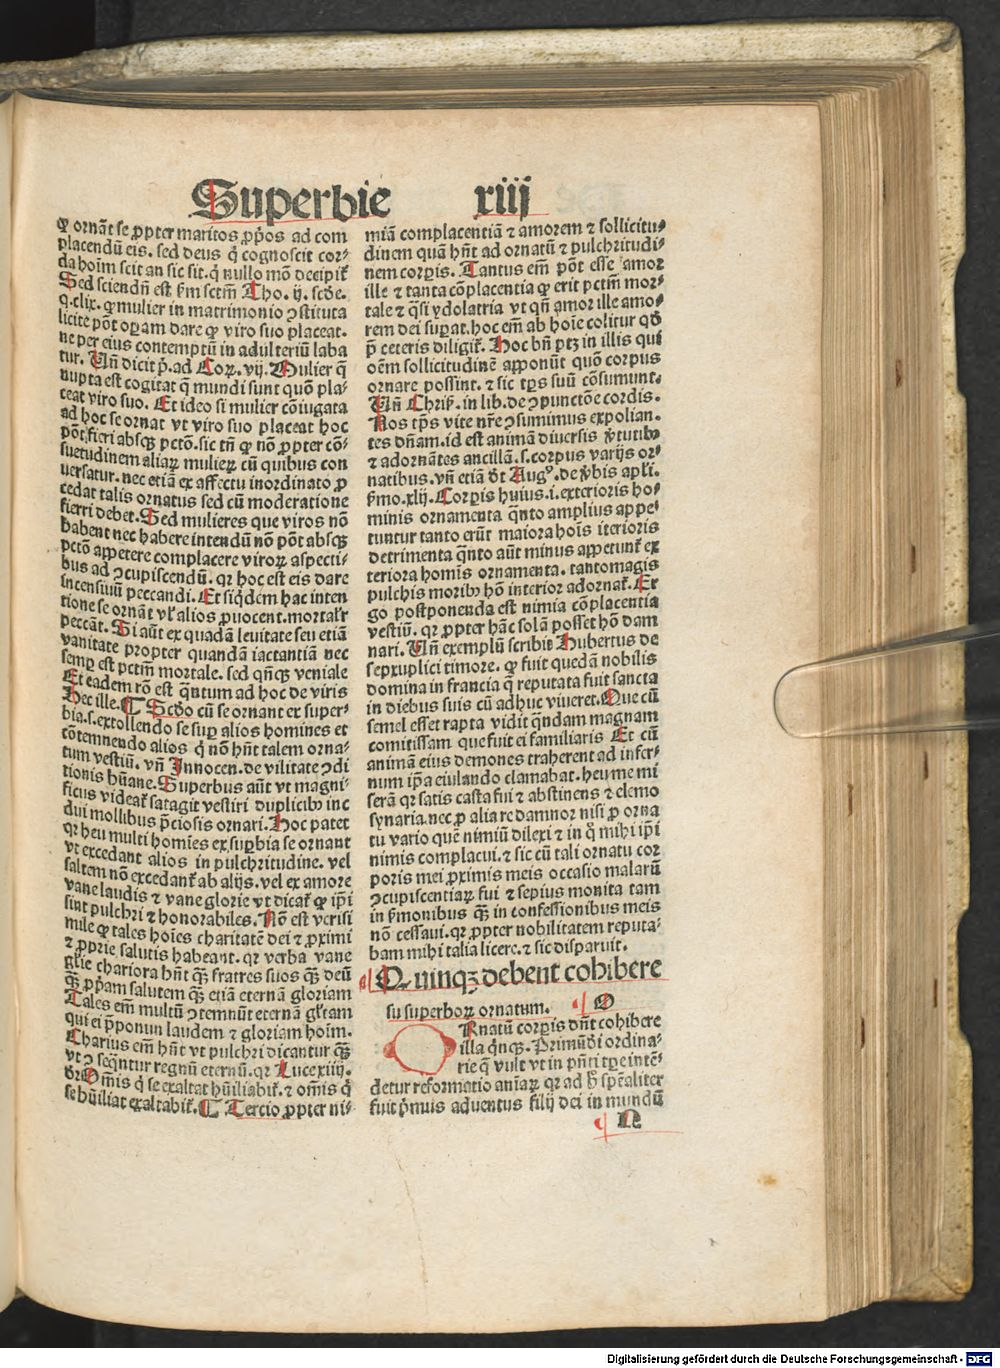 Superbie xiij
ꝙ ornāt se ꝓpter maritos ꝓp̄os ad com
placendū eis. sed deus q̇ cognoscit cor⸗
da hoīm scit an sic sit. q̇ nullo mō decipit᷑
Sed sciendū est ẜm sctm̄ Tho. ij. scd̄e.
q. clix. ꝙ mulier in matrimonio ↄstituta
licite pōt oꝑam dare ꝙ viro suo placeat.
ne per eius contemptū in adulteriū laba
tur. Vn̄ dicit p̄. ad Coꝝ. vij. Mulier q̄
nupta est cogitat q̄ mundi sunt quō pla⸗
ceat viro suo. Et ideo si mulier cōiugata
ad hoc se ornat vt viro suo placeat hoc
pōt fieri absqꝫ pctō. sic tn̄ ꝙ nō ꝓpter cō⸗
suetudinem aliaꝝ mulieꝝ cū quibus con
uersatur. nec etiā ex affectu inordinato ꝓ
cedat talis ornatus sed cū moderatione
fierri debet. Sed mulieres que viros nō
habent nec habere intendūt nō pōt absqꝫ
pctō appetere complacere viroꝝ aspecti⸗
bus ad ↄcupiscendū. qꝛ hoc est eis dare
incensiuū peccandi. Et siq̇dem hac inten
tione se ornāt vt alios ꝓuocent. mortalr̄
peccāt. Si aūt ex quadā leuitate seu etiā
vanitate propter quandā iactantiā nec
semꝑ est pctm̄ mortale. sed qn̄qꝫ veniale
Et eadem rō est q̄ntum ad hoc de viris
Hec ille. ¶ Scd̄o cū se ornant ex super⸗
bia. s. extollendo se suꝑ alios homines et
cōtemnendo alios q̇ nō hn̄t talem orna⸗
tum vestiū. vn̄ Innocen. de vilitate ↄdi
tionis hūane. Superbus aūt vt magni⸗
ficus videat᷑ satagit vestiri duplicibꝰ inc
dui mollibus p̄ciosis ornari. Hoc patet
qꝛ heu multi homīes ex suꝑbia se ornant
vt excedant alios in pulchritudine. vel
saltem nō excedant᷑ ab alijs. vel ex amore
vane laudis ⁊ vane glorie vt dicat᷑ ꝙ ip̄i
sint pulchri ⁊ honorabiles. Nō est verisi
mile ꝙ tales hoīes charitatē dei ⁊ ꝓximi
⁊ ꝓprie salutis habeant. qꝛ verba vane
gl̄ie chariora hn̄t qꝫ fratres suos qꝫ deū
qꝫ ꝓp̄am salutem qꝫ etiā eternā gloriam
Tales em̄ multū ↄtemnūt eternā gl̄iam
qui ei p̄ponun laudem ⁊ gloriam hoīm.
Charius em̄ hn̄t vt pulchri dicantur qꝫ
vt ↄseq̄ntur regnū eternū. qꝛ Luce xiiij.
dr̄ Om̄is q̇ se exaltat hūiliabit᷑. ⁊ om̄is q̇
se hūiliat exaltabit᷑. ¶ Tercio ꝓpter ni⸗
miā complacentiā ⁊ amorem ⁊ sollicitu⸗
dinem quā hn̄t ad ornatū ⁊ pulchritudi⸗
nem corꝑis. Tantus em̄ pōt esse amor
ille ⁊ tanta cōplacentia ꝙ erit pctm̄ mor⸗
tale ⁊ q̄si ydolatria vt qn̄ amor ille amo⸗
rem dei suꝑat. hoc em̄ ab hoīe colitur qd̄
p̄ ceteris diligit᷑. Hoc bn̄ ptꝫ in illis qui
oēm sollicitudinē apponūt quō corpus
ornare possint. ⁊ sic tp̄s suū cōsumunt.
Vn̄ Chriẜ. in lib. de ↄpunctōe cordis.
Nos tp̄s vite nr̄e ↄsumimus expolian⸗
tes dn̄am. id est animā diuersis ꝟtutibꝰ
⁊ adornātes ancillā. s. corpus varijs or⸗
natibus. vn̄ etiā dt̄ Augꝰ. de ꝟbis apl̄i.
ẜmo. xlij. Corꝑis huius. i. exterioris ho⸗
minis ornamenta q̄nto amplius appe⸗
tuntur tanto erūt maiora hoīs īterioris
detrimenta q̄nto aūt minus appetunt᷑ ex
teriora homīs ornamenta. tantomagis
pulchis moribꝰ hō interior adornat᷑. Er
go postponenda est nimia cōplacentia
vestiū. qꝛ ꝓpter hāc solā posset hō dam
nari. Vn̄ exemplū scribit Hubertus de
sepxuplici timore. ꝙ fuit quedā nobilis
domina in francia q̄ reputata fuit sancta
in diebus suis cū adhuc viueret. Que cū
semel esset rapta vidit q̄ndam magnam
comitissam que fuit ei familiaris Et cū
animā eius demones traherent ad infer⸗
num ip̄a eiulando clamabat. heu me mi
serā qꝛ satis casta fui ⁊ abstinens ⁊ elemo
synaria. nec ꝓ alia re damnor nisi ꝓ orna
tu vario quē nimiū dilexi ⁊ in q̇ mihi ip̄i
nimis complacui. ⁊ sic cū tali ornatu cor
poris mei ꝓximis meis occasio malarū
ↄcupiscentiaꝝ fui ⁊ sepius monita tam
in ẜmonibus qꝫ in confessionibus meis
nō cessaui. qꝛ ꝓpter nobilitatem reputa⸗
bam mihi talia licere. ⁊ sic disparuit.
¶ Quinqꝫ debent cohibere
su superboꝝ ornatum. ¶ O
Rnatū corꝑis dn̄t cohibere
illa q̇nqꝫ. Primū di ordina⸗
rie q̄ vult vt in pn̄ti tꝑe intē⸗
detur reformatio aīaꝝ qꝛ ad h̄ sp̄ealiter
fuit p̄mus aduentus filij dei in mundū
¶ N
Digitalisierung gefördert durch die Deutsche Forschungsgemeinschaft - DFG